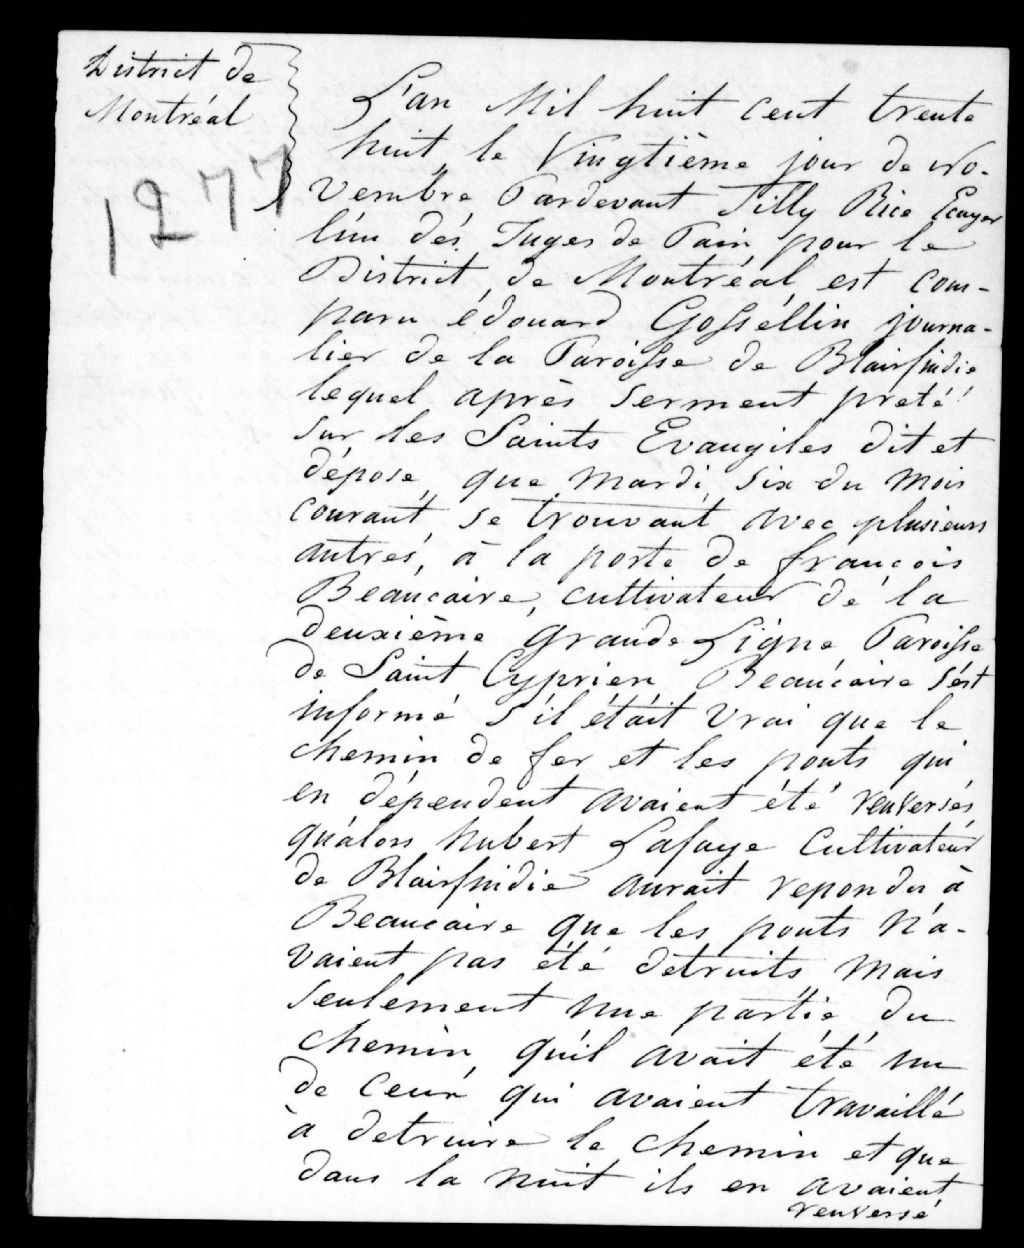 District de
Montréal
1277
L'an Mil huit cent trente
huit, le Vingtième jour de No-
vembre Pardevant Tilly Rice Ecuyer
l'un des Juges de Paix pour le
District de Montréal est com-
paru édouard Gossellin journa-
lier de la Paroisse de Blairfindie
lequel après serment preté
sur les Saints Evangiles dit et
dépose, que mardi, six du mois
courant, se trouvant avec plusieurs
autres, à la porte de françois
Beaucaire, cultivateur de la
deuxième Grande Ligne Paroisse
de Saint Cyprien Beaucaire s'est
informé s'il était vrai que le
chemin de fer et les ponts qui
en dépendent avaient été renversés
qu'alors hubert Lafaye Cultivateur
de Blairfindie aurait repondu à
Beaucaire que les ponts n'a-
vaient pas été détruits mais
seulement une partie du
chemin, qu'il avait été un
de ceux qui avaient travaillé
à detruire le chemin et que
dans la nuit ils en avaient
renversé